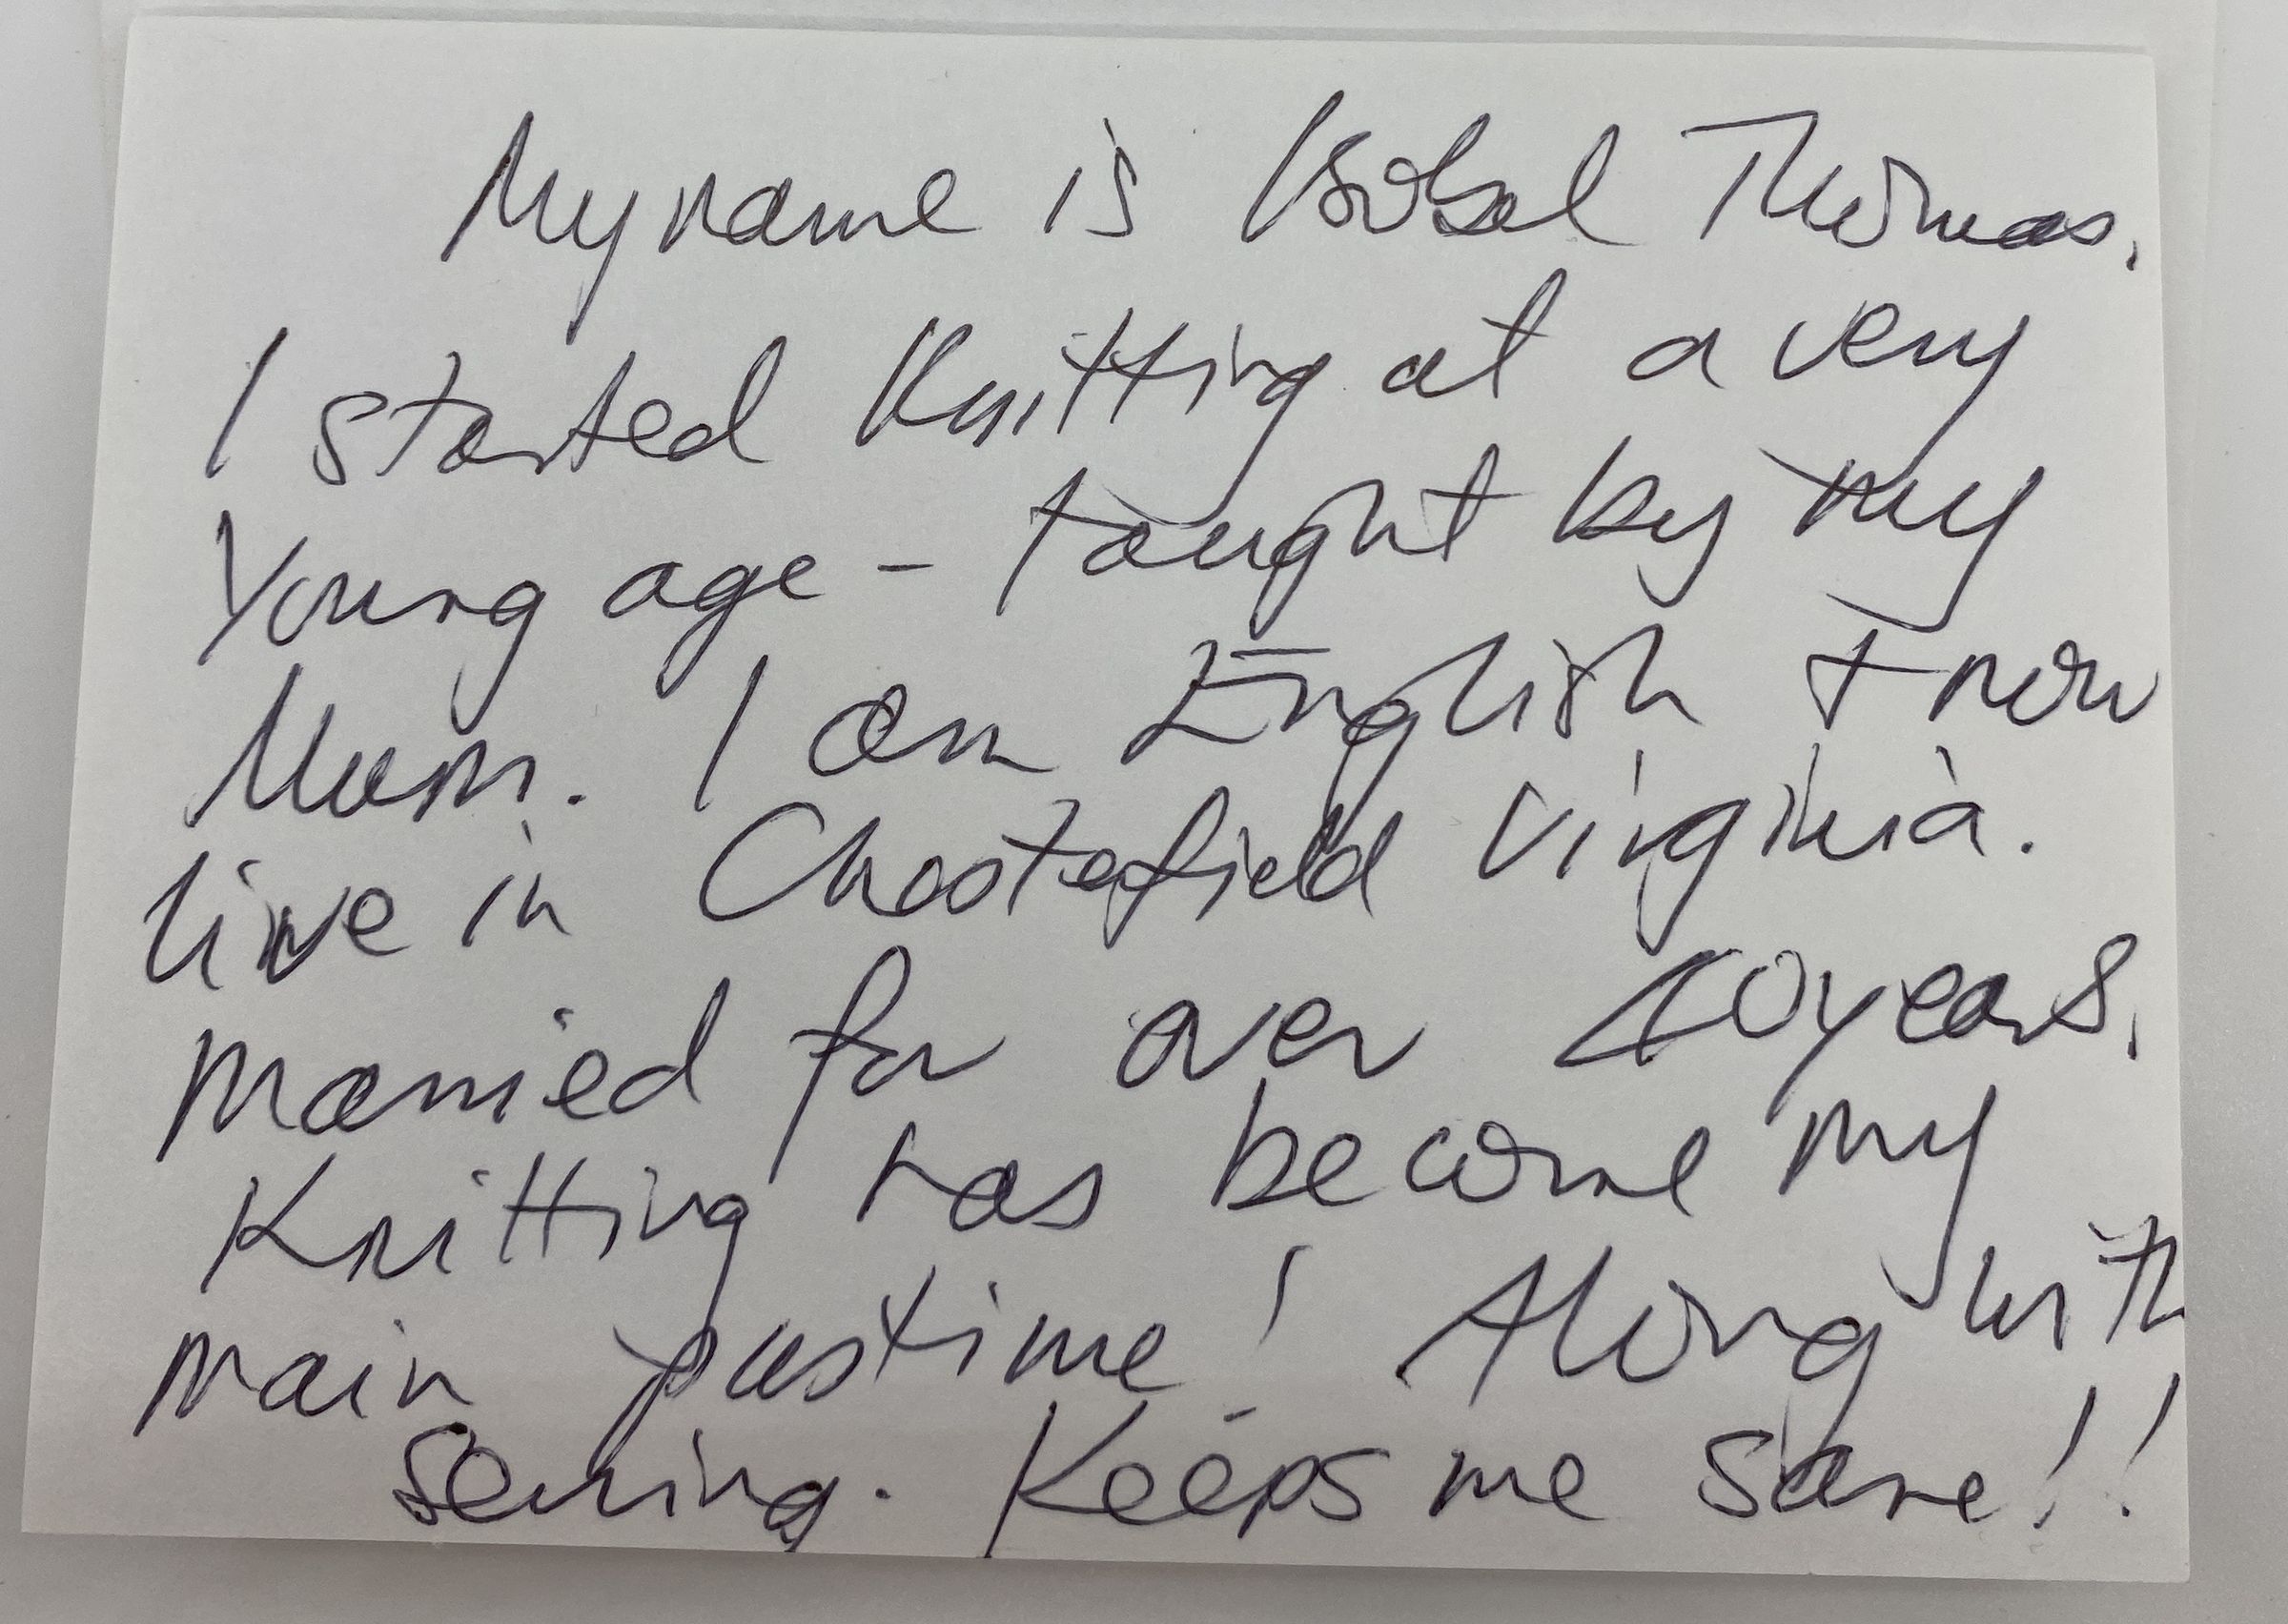 My name is Isobel Thomas.
I started Knitting at a very
Young age - taught by my
Mum. I am English + now
live in Chesterfield Virginia.
Married for over 40 years.
Knitting has become my
main pastime! Along with
sewing. Keeps me sane!!